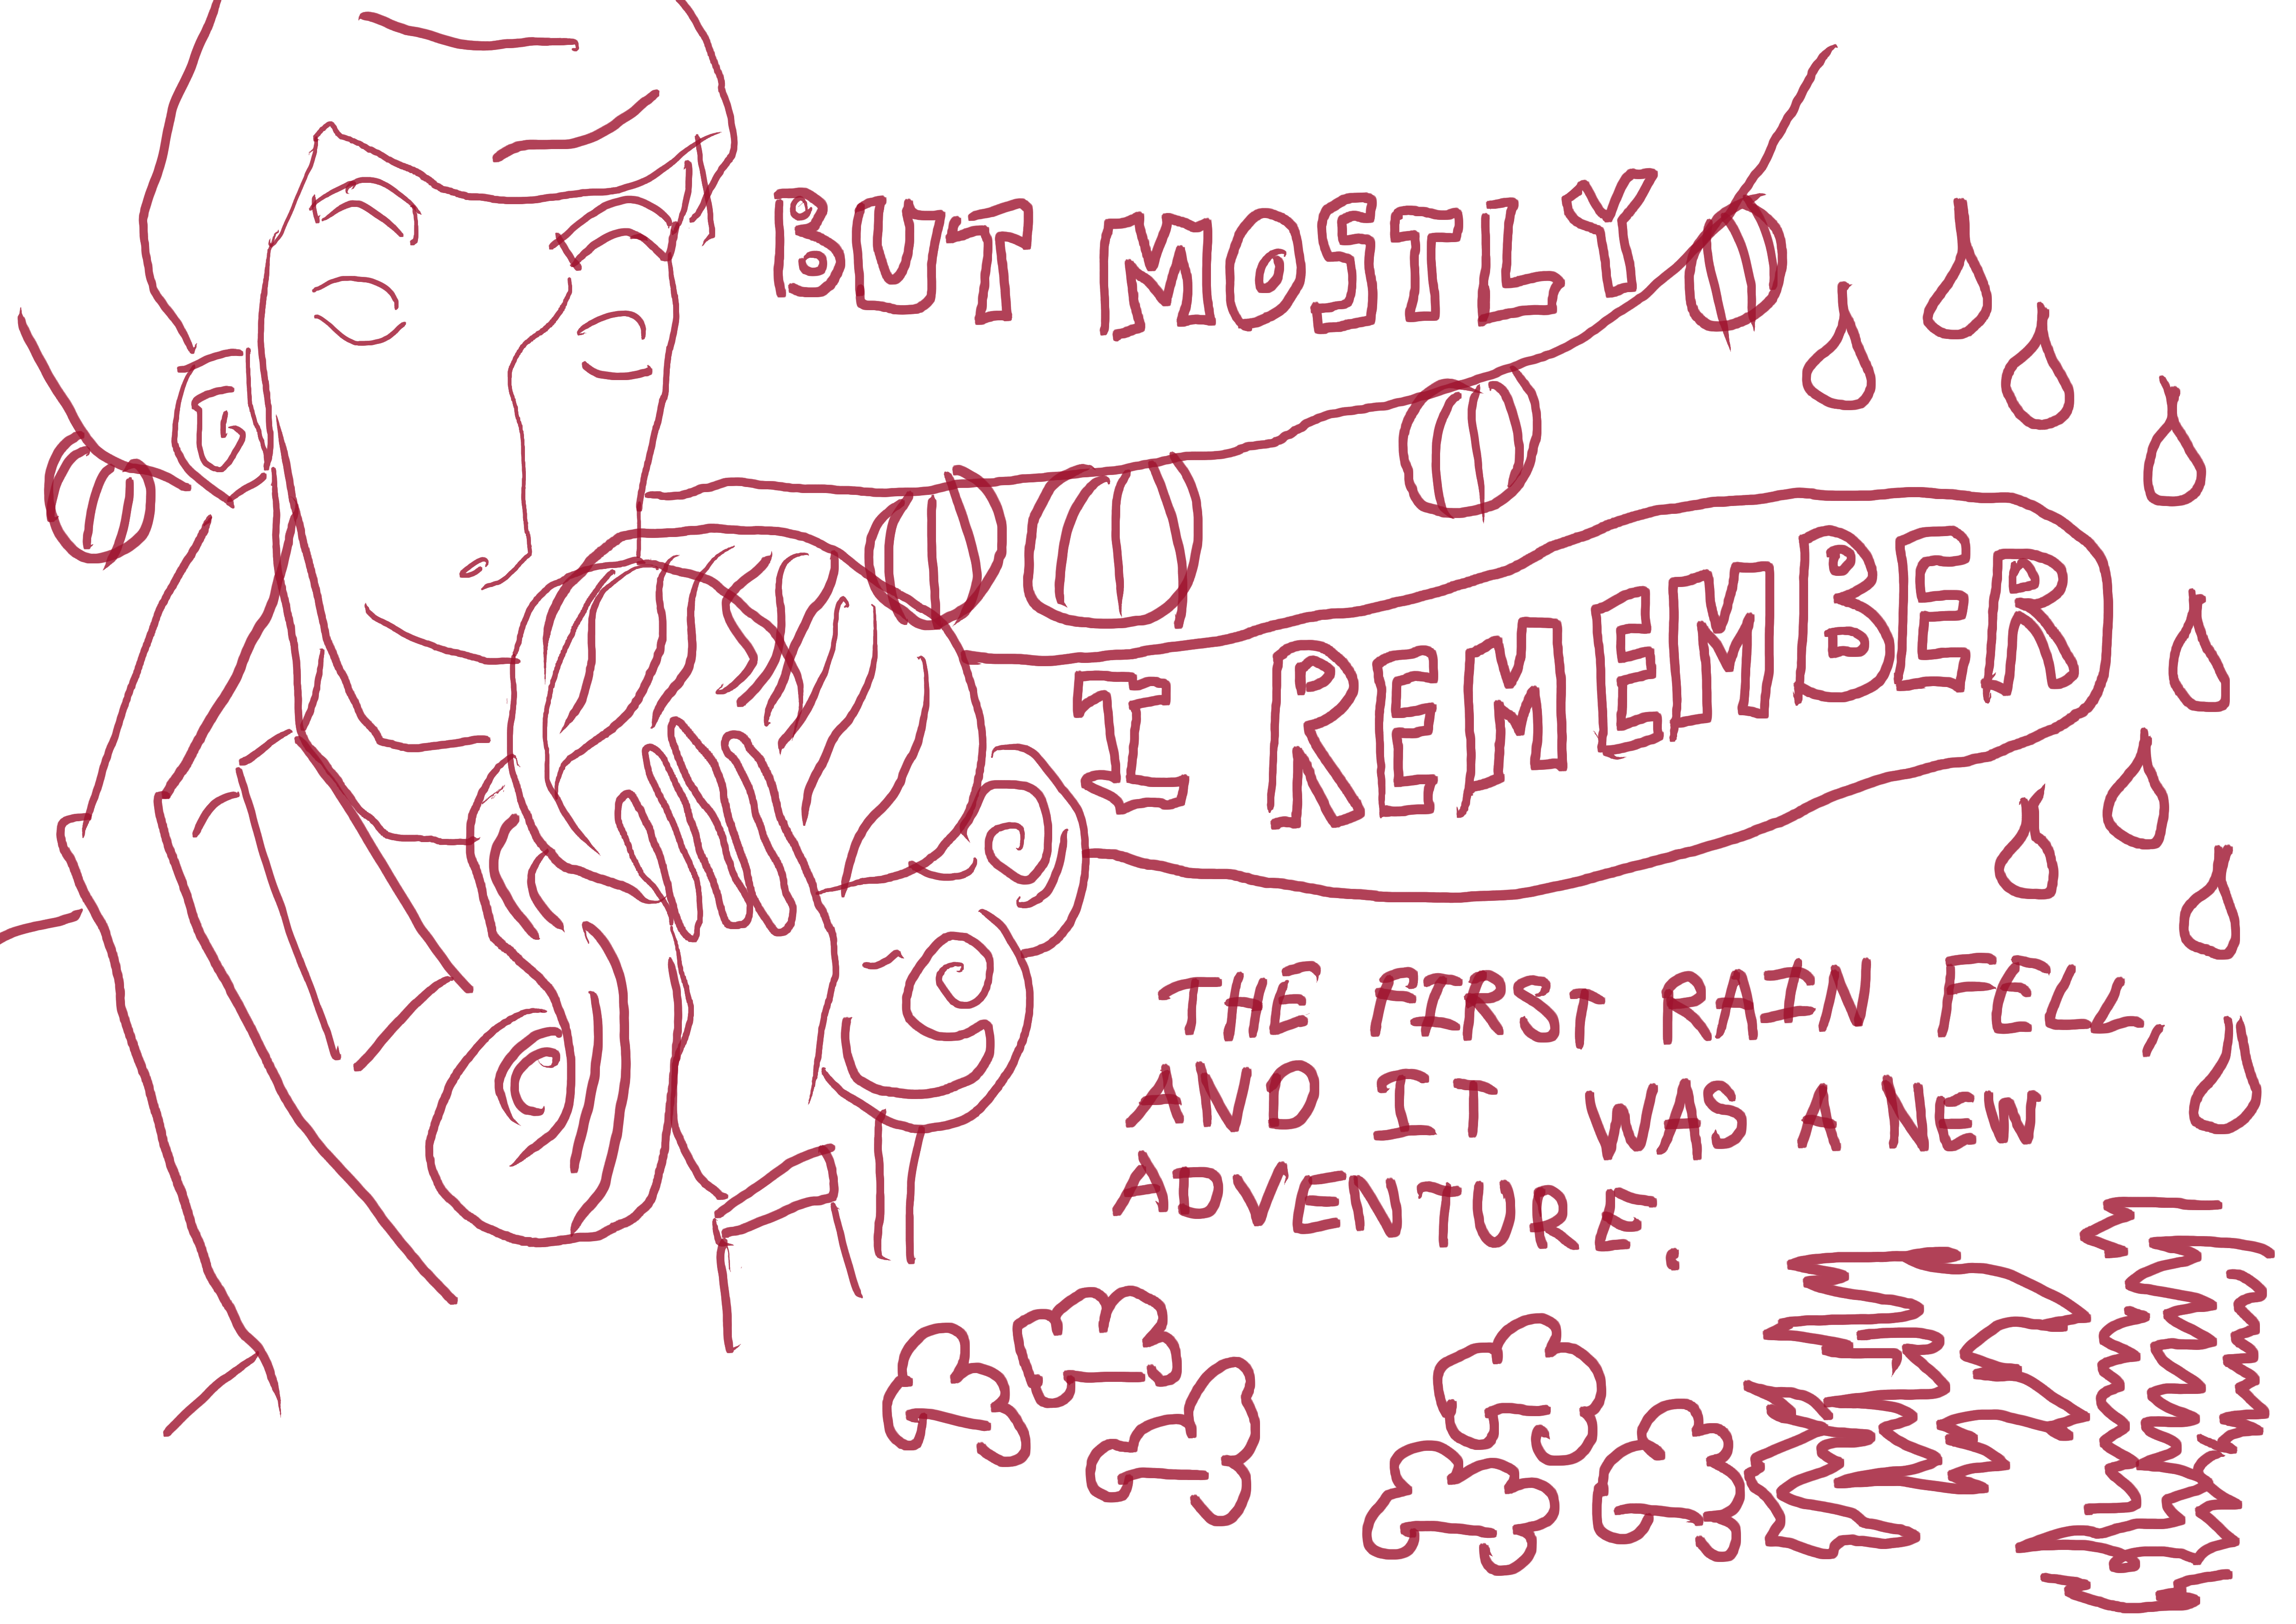 BUT MOSTLY
I REMEMBER
THE FIRST RAIN FELL,
AND IT WAS A NEW
ADVENTURE.